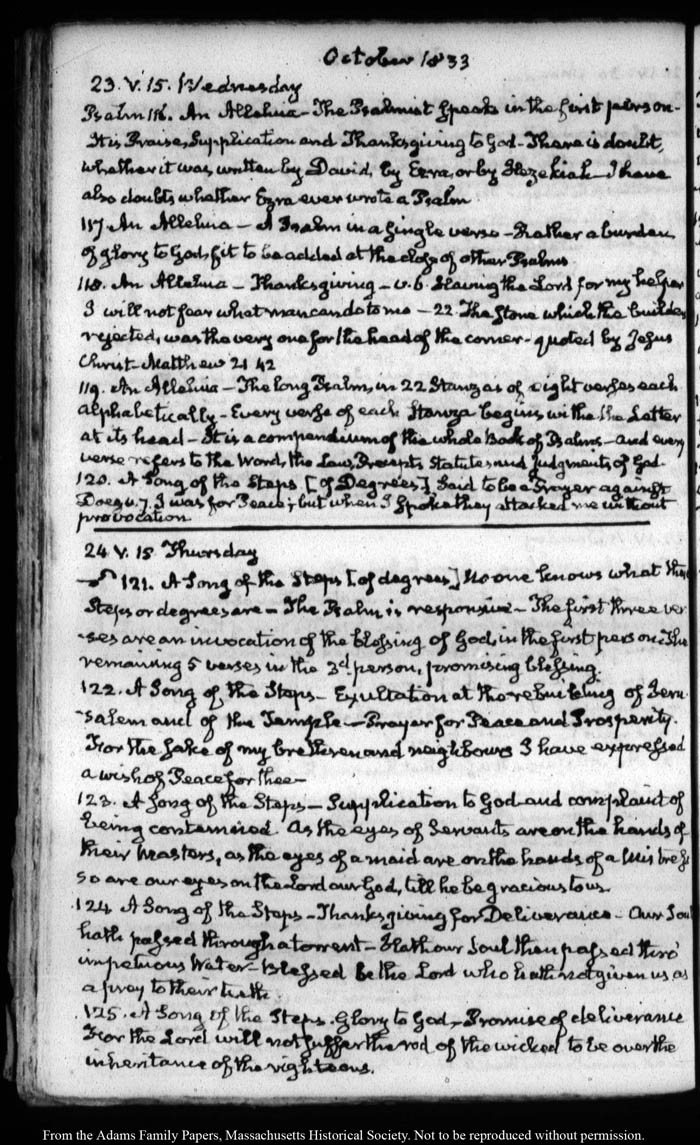 October 1833
23. V. 15. Wednesday
Psalm 116. An Alleluia – The Psalmist speaks in the first person –
It is Praise, Supplication and Thanksgiving to God – There is doubt,
whether it was written by David, by Ezra, or by Hezekiah – I have
also doubts whether Ezra ever wrote a Psalm
117 An Alleluia – A Psalm in a single verse – Rather a burden
of glory to God, fit to be added at the close of other Psalms
118. An Alleluia – Thanksgiving – v. 6. Having the Lord for my helper
I will not fear what man can do to me – 22. The stone which the builders
rejected, was the very one for the head of the corner – quoted by Jesus
Christ – Matthew 21 42
119. An Alleluia – The long Psalm, in 22 Stanzas of eight verses each
alphabetically – Every verse of each Stanza begins with the Letter
at its head – It is a compendium of the whole Book of Psalms – and every
verse refers to the Word, the Law, Precepts Statutes and judgments of God.
120. A Song of the Steps [of Degrees] Said to be a Prayer against
Doeg v. 7. I was for Peace; but when I spoke they attacked me without
provocation
24 V. 15 Thursday
121. A Song of the Steps [of degrees] No one knows what the
Steps or degrees are – The Psalm is responsive – The first three ver
-ses are an invocation of the blessing of God, in the first person. The
remaining 5 verses in the 3d. person, promising blessing.
122. A Song of the Steps – Exultation at the rebuilding of Jeru
-salem and of the Temple – Prayer for Peace and Prosperity.
For the sake of my brethren and neighbours I have expressed
a wish of Peace for thee –
123. A Song of the Steps – Supplication to God and complaint of
being contemned. As the eyes of Servants are on the hands of
their Masters, as the eyes of a maid are on the hands of a Mistress
so are our eyes on the Lord our God, till he be gracious to us.
124 A Song of the Steps – Thanksgiving for Deliverance – Our Soul
hath passed through a torrent – Hath our Soul then passed thro'
impetuous Water – Blessed be the Lord who hath not given us as
a prey to their teeth.
125. A Song of the Steps. Glory to God – Promise of deliverance
For the Lord will not suffer the rod of the wicked to be over the
inheritance of the righteous.
From the Adams Family Papers, Massachusetts Historical Society. Not to be reproduced without permission.